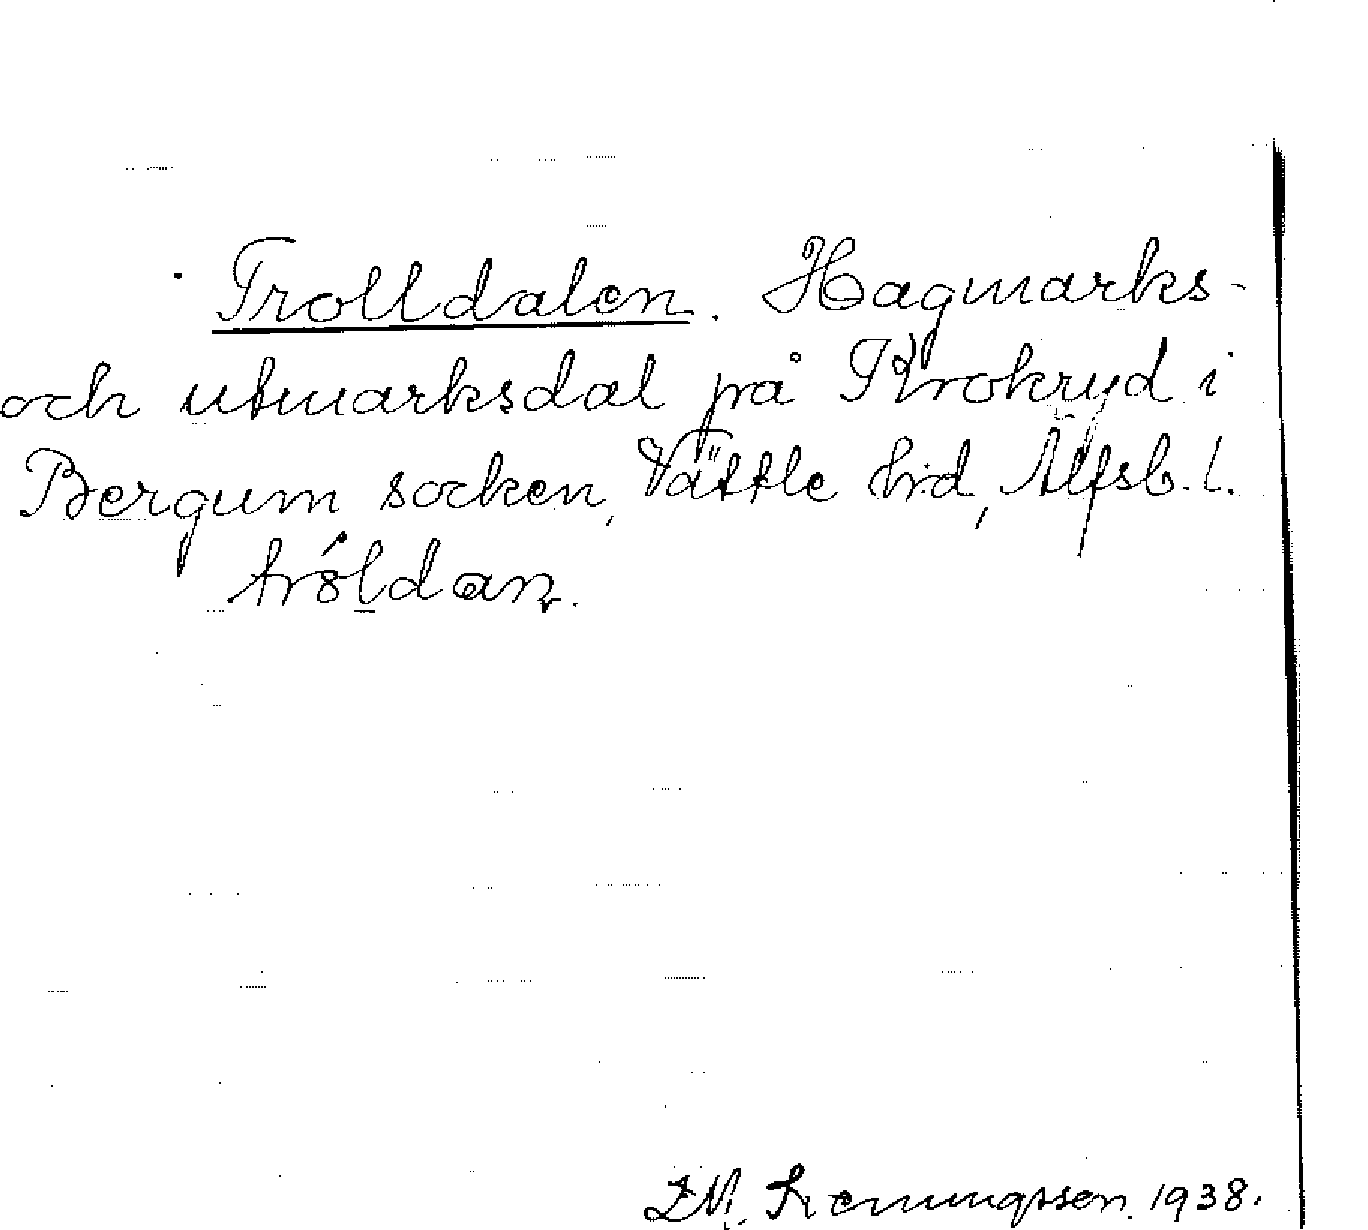 Trolldalen. Hagmarks-
och utmarksdal på Krokryd i
Bergum socken, Vättle hd, Älfsb. l.
1938.